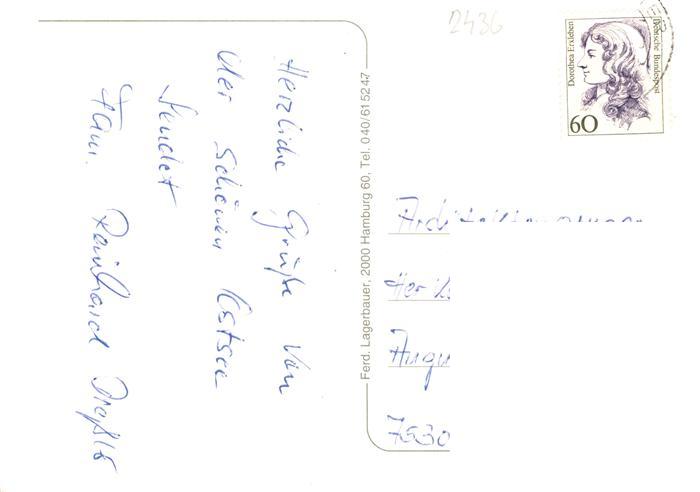 Herzliche Grüße von
der schönen Ostsee
sendet
Fam. Reinhard
Ferd. Lagerbauer, 2000 Hamburg 60, Tel. 040/6152 47
2436
Dorothea Erxleben
Deutsche Bundespost
60
7530